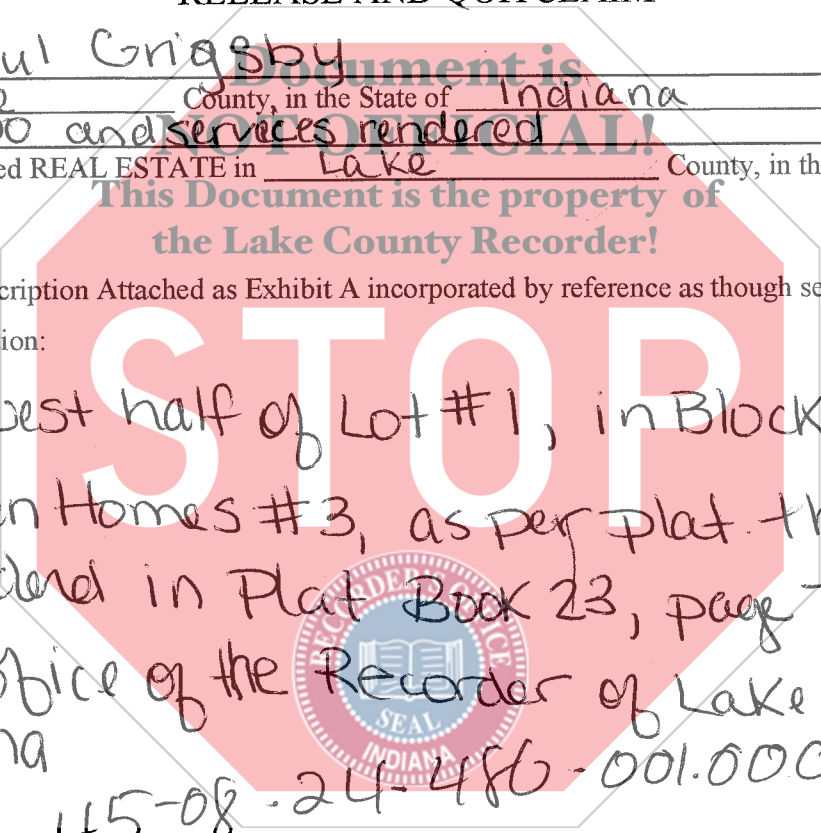 RELEASE AND QUIT CLAIM
ul Grigsby
County, in the State of Indiana
00 and services rendered
ed REAL ESTATE in Lake County, in th
Document is
NOT OFFICIAL!
This Document is the property of
the Lake County Recorder!
cription Attached as Exhibit A incorporated by reference as though se
ion:
STOP
west half of Lot #1, in Block
n Homes #3, as per plat th
ded in Plat Book 23, page
office of the Recorder of Lake
na
45-08-24-486-001.000
RECORDER'S OFFICE
SEAL
INDIANA